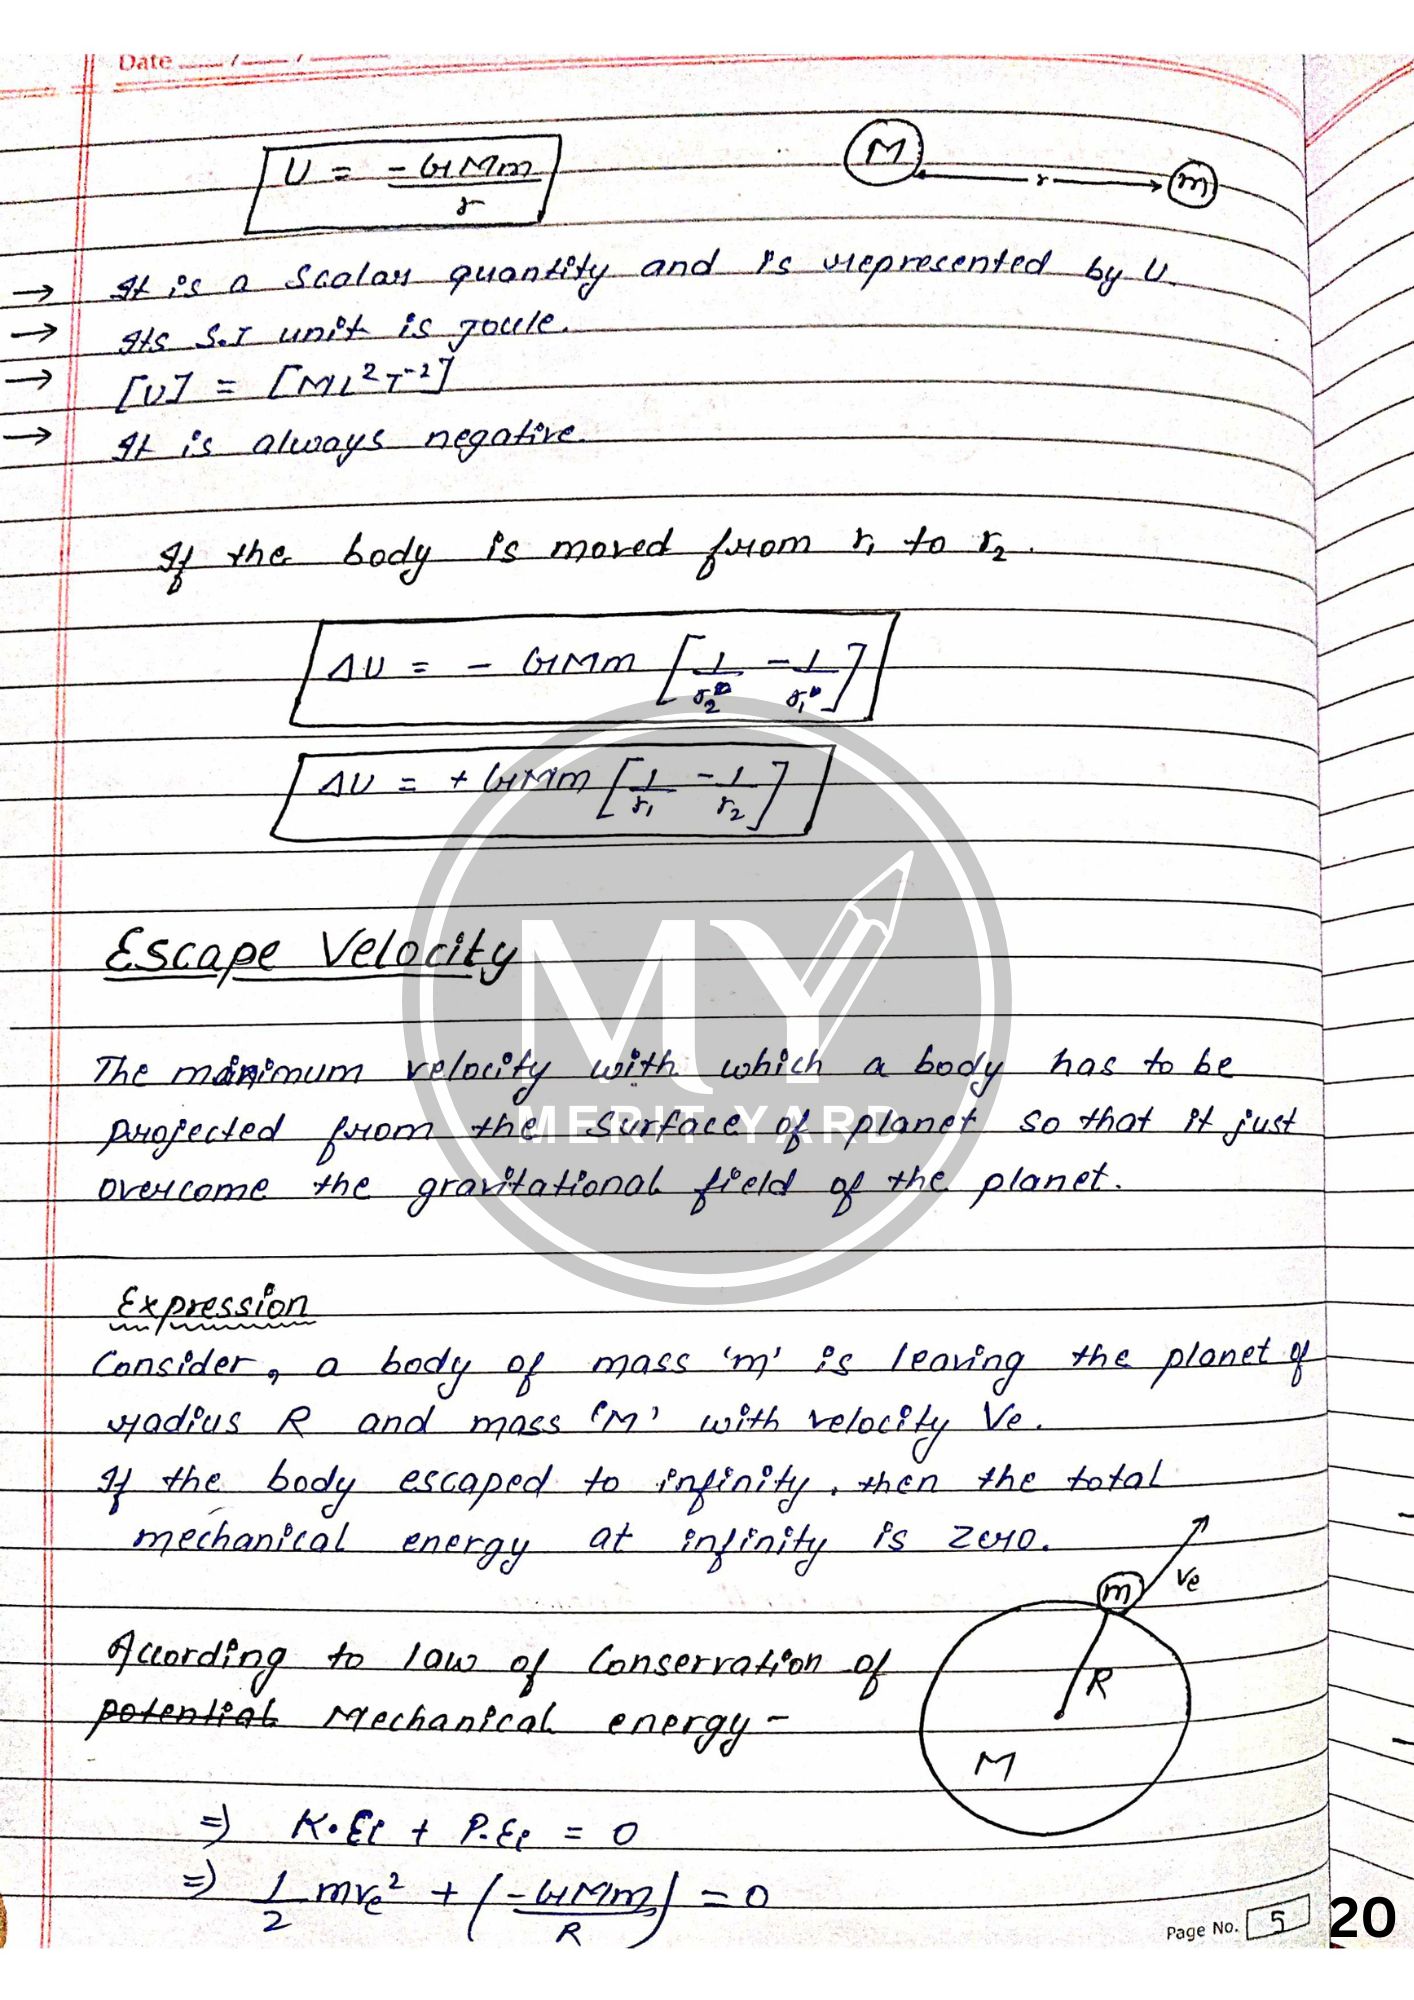 Date ___/___/___
U = -GMm/r
M r m
→ It is a scalar quantity and is represented by U.
→ Its S.I unit is joule.
→ [U] = [ML²T⁻²]
→ It is always negative.
If the body is moved from r₁ to r₂.
ΔU = - GMm [1/r₂ - 1/r₁]
ΔU = + GMm [1/r₁ - 1/r₂]
Escape Velocity
The minimum velocity with which a body has to be
projected from the surface of planet so that it just
overcome the gravitational field of the planet.
MY
MERIT YARD
Expression
Consider, a body of mass 'm' is leaving the planet of
radius R and mass 'M' with velocity Ve.
If the body escaped to infinity, then the total
mechanical energy at infinity is zero.
m Ve
R
M
According to law of Conservation of
potential Mechanical energy -
⇒ K.Ei + P.Ei = 0
⇒ 1/2 mve² + (-GMm/R) = 0
Page No. 5
20